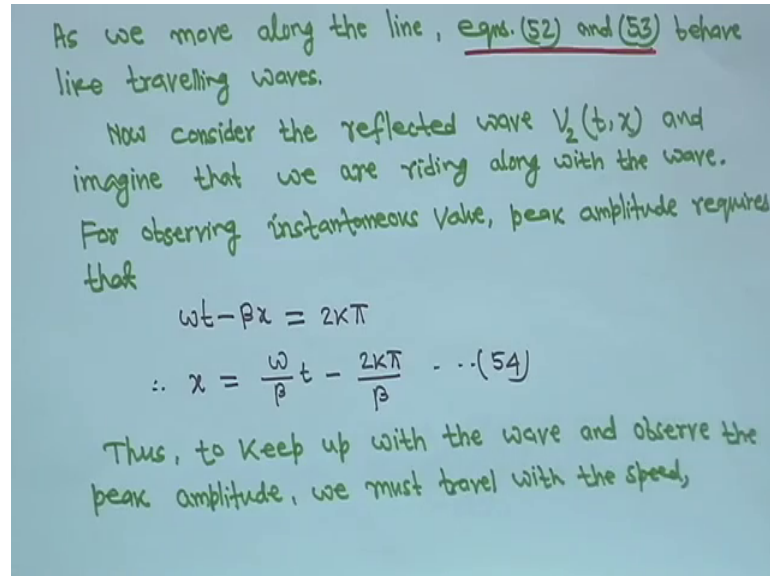 As we move along the line, eqns. (52) and (53) behave
like travelling waves.
Now consider the reflected wave V₂(t,x) and
imagine that we are riding along with the wave.
For observing instantaneous value, peak amplitude requires
that
ωt - βx = 2Kπ
∴ x = ω/β t - 2Kπ/β ...(54)
Thus, to keep up with the wave and observe the
peak amplitude, we must travel with the speed,